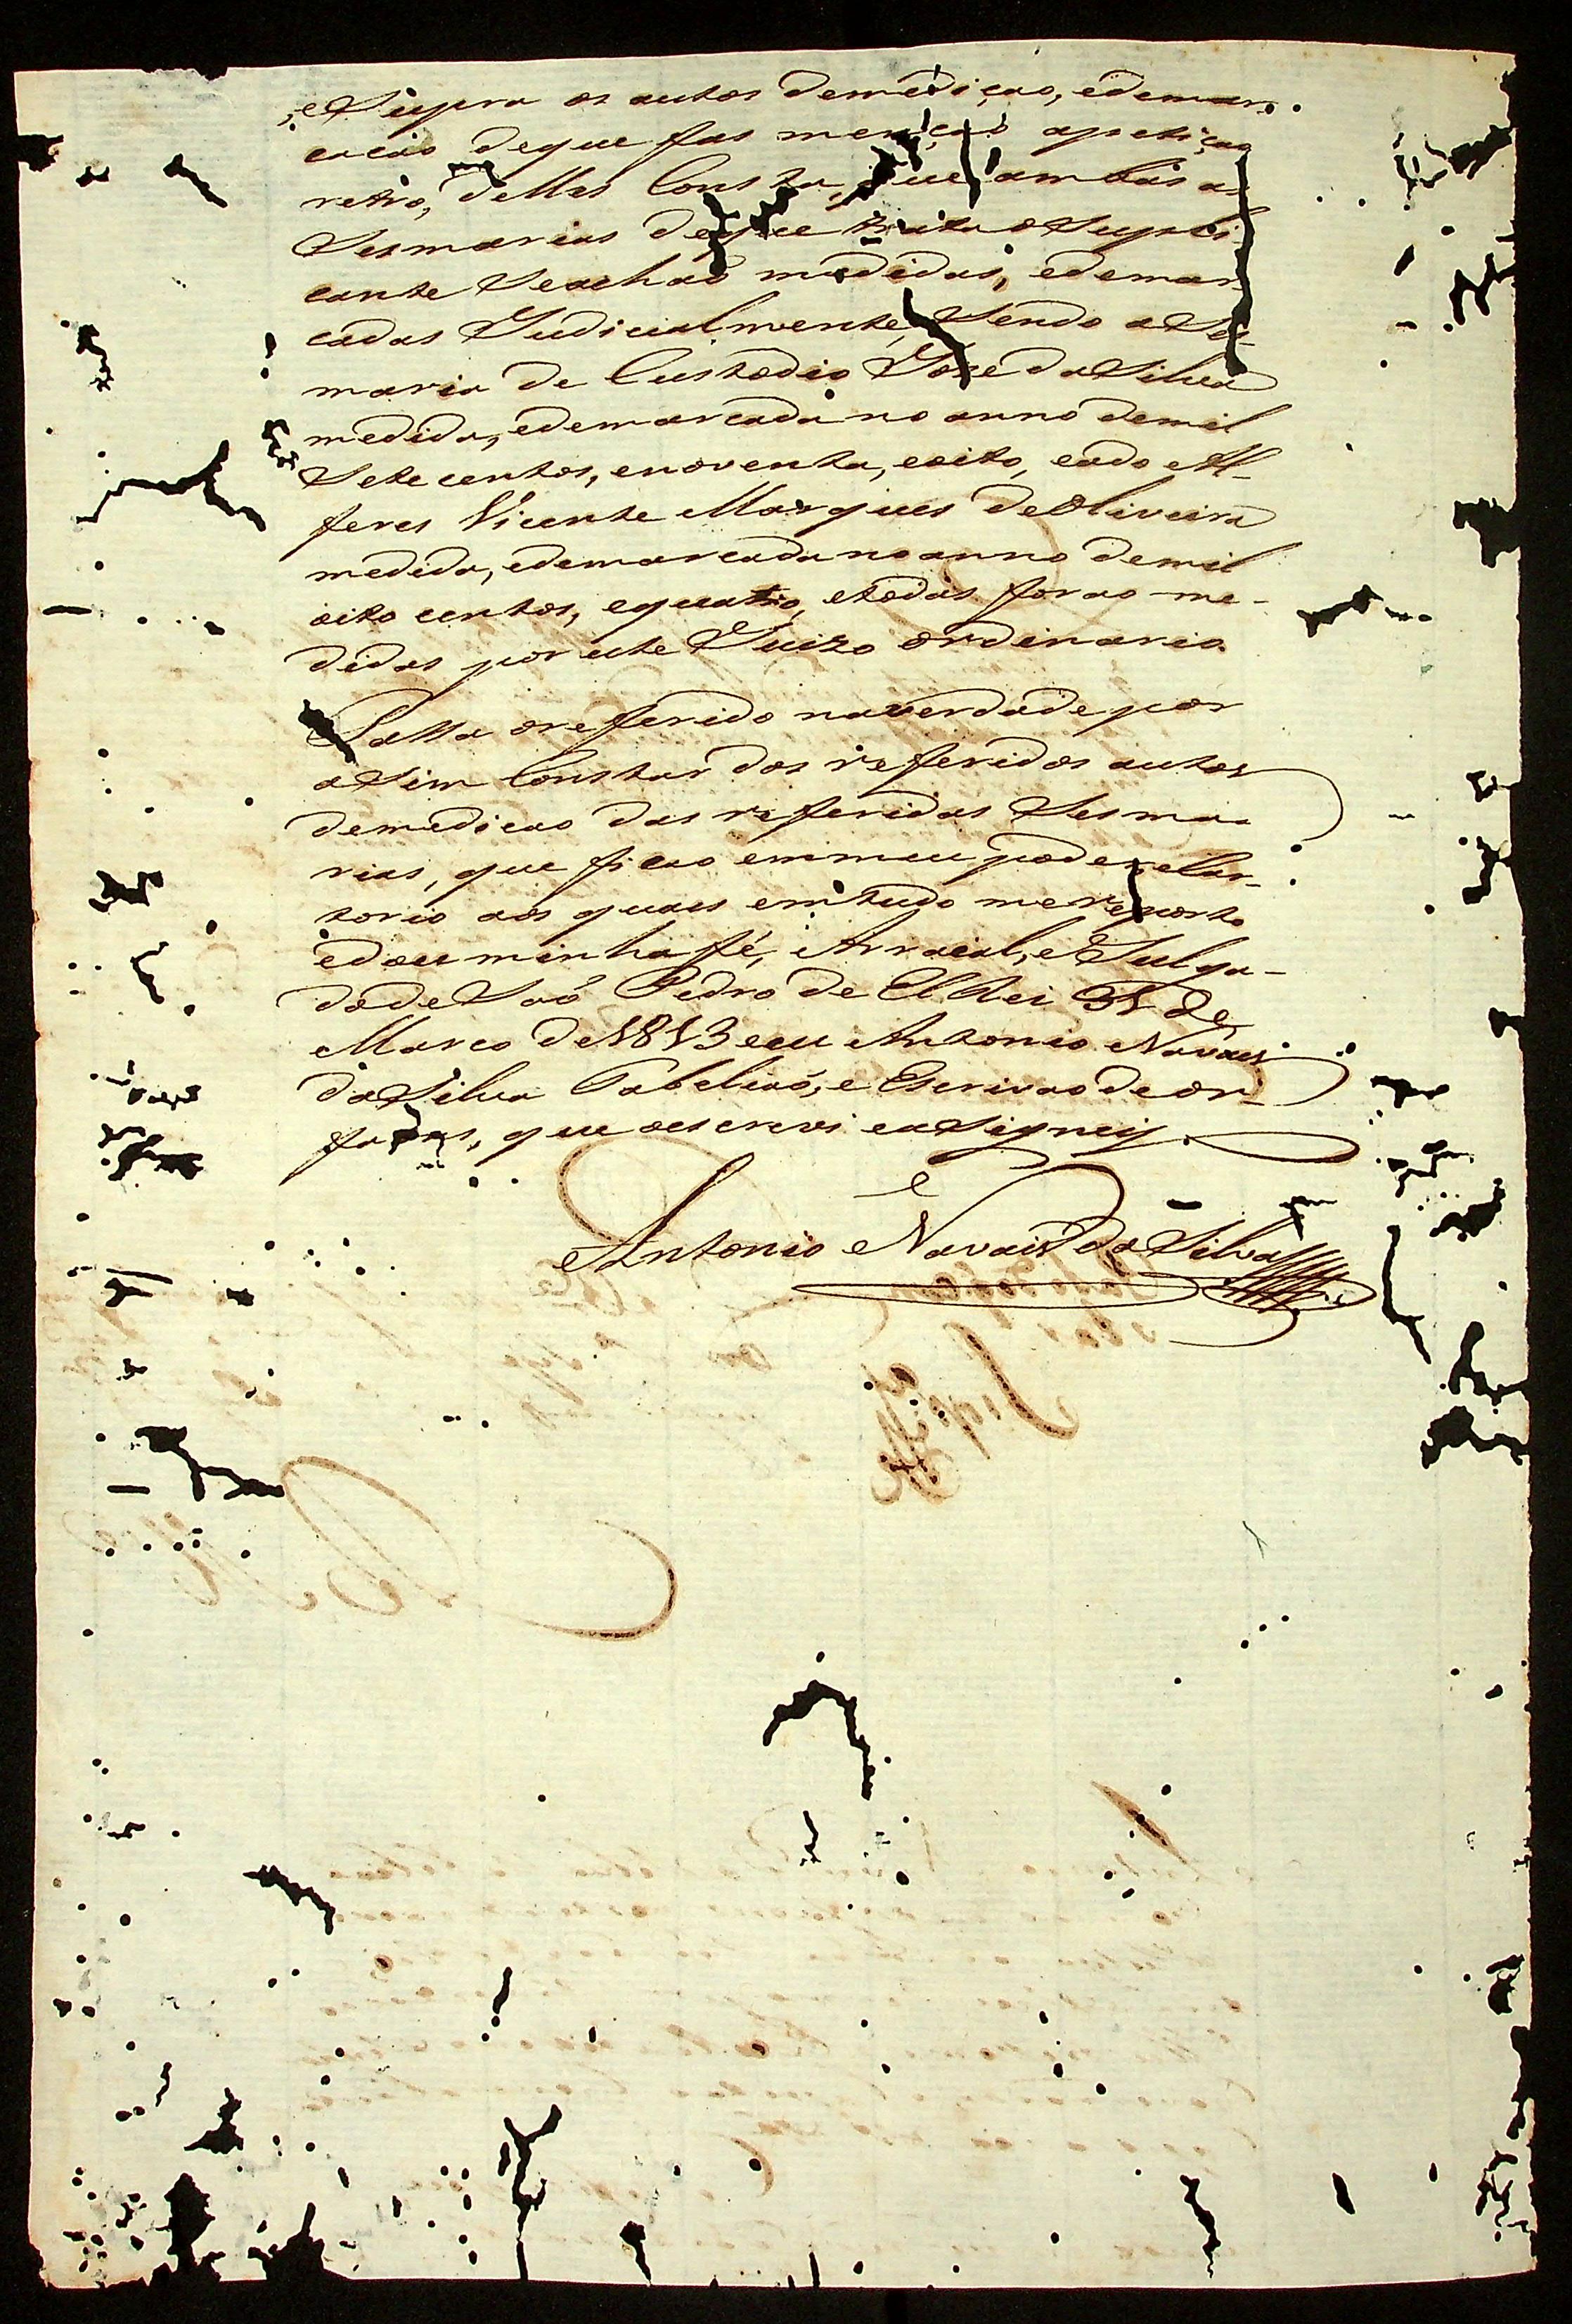 e Supra os autos demedição, edemar-
cacão deque fas menção apetição
retro, delles Consta, que ambas as
Sesmarias deque trata o Supli
cante Seachaõ medidas, edemar
cadas Judicialmente, Sendo a Ses-
maria de Custodio Jose da Silva
medida, edemarcada no anno demil
Sete centos, enoventa, eoito, eado Al-
feres Vicente Marques de Oliveira
medida, edemarcada no anno demil
oito centos, equatro, etodas forao me-
didas por este Juizo ordinario.
Passa oreferido naverdade por
aSim Constar dos referidos autos
demedicao das referidas Sesma-
rias, que ficao emmeu poder, eCar-
torio aos quaes emtudo mereporto
edou minha fé, Arraial, e Julga-
do de Saõ Pedro de ElRei 31 de
Marco de 1813 eeu Antonio Navais
da Silva Tabeliaõ, e Escrivao de or-
faos, que oescrevi eaSigney.
Antonio Navais da Silva